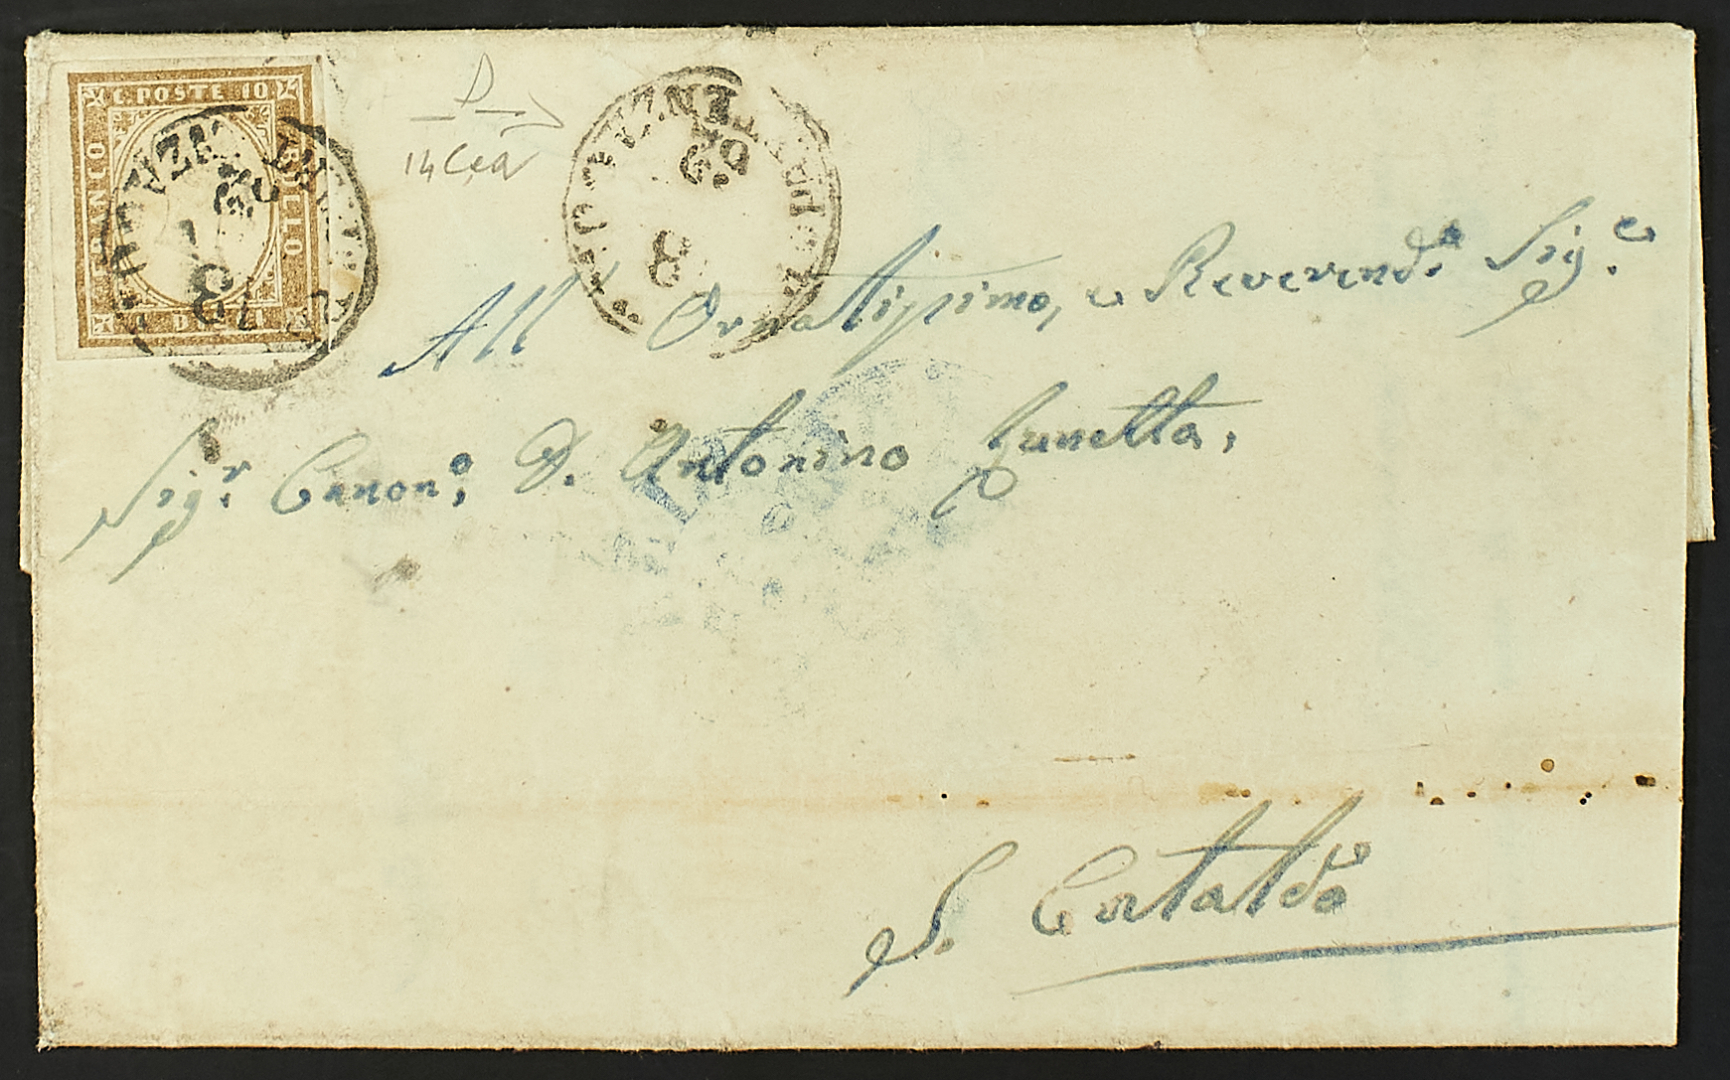 C. POSTE 10
FRANCO
BOLLO
DIECI
14Cea
All' Ornatissimo, e Reverend.o Sig.e
Sig.r Canon.o D. Antonino Lunetta,
S. Cataldo